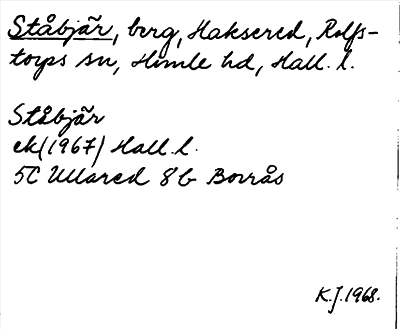 Ståbjär, berg, Haksered, Rolfs-
torps sn, Himle hd, Hall. l.
Ståbjär
ek (1967) Hall. l.
5C Ullared 8b Borrås
K.J. 1968.